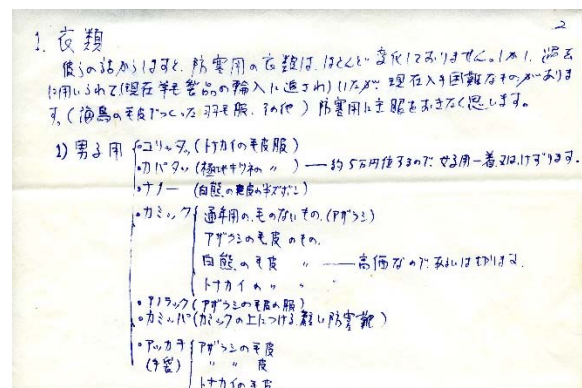 2
1. 衣類
彼らの話からしますと、防寒用の衣類は、ほとんど変化しておりません。しかし、過去
に用いられて(現在羊毛製品の輸入に追われ)いたが、現在入手困難なものがありま
す。(海鳥の毛皮でつくった羽毛服、その他) 防寒用に主眼をおきたく思います。
1) 男子用
・コリッタッ(トナカイの毛皮服)
・カパタッ(極地キツネの 〃 ) ── 約5万円位するので 女子用一着又はけずります。
・ナノー (白熊の毛皮の半ズボン)
・カミック 通年用の、毛のないもの、(アザラシ)
アザラシの毛皮のもの、
白熊の毛皮 〃 ── 高価なので、あるいは切ります。
トナカイの 〃 〃
・アノラック(アザラシの毛皮の服)
・カミッパ(カミックの上につける 防寒靴)
・アッカチ アザラシの毛皮
(手袋) 〃 〃 皮
トナカイの毛皮